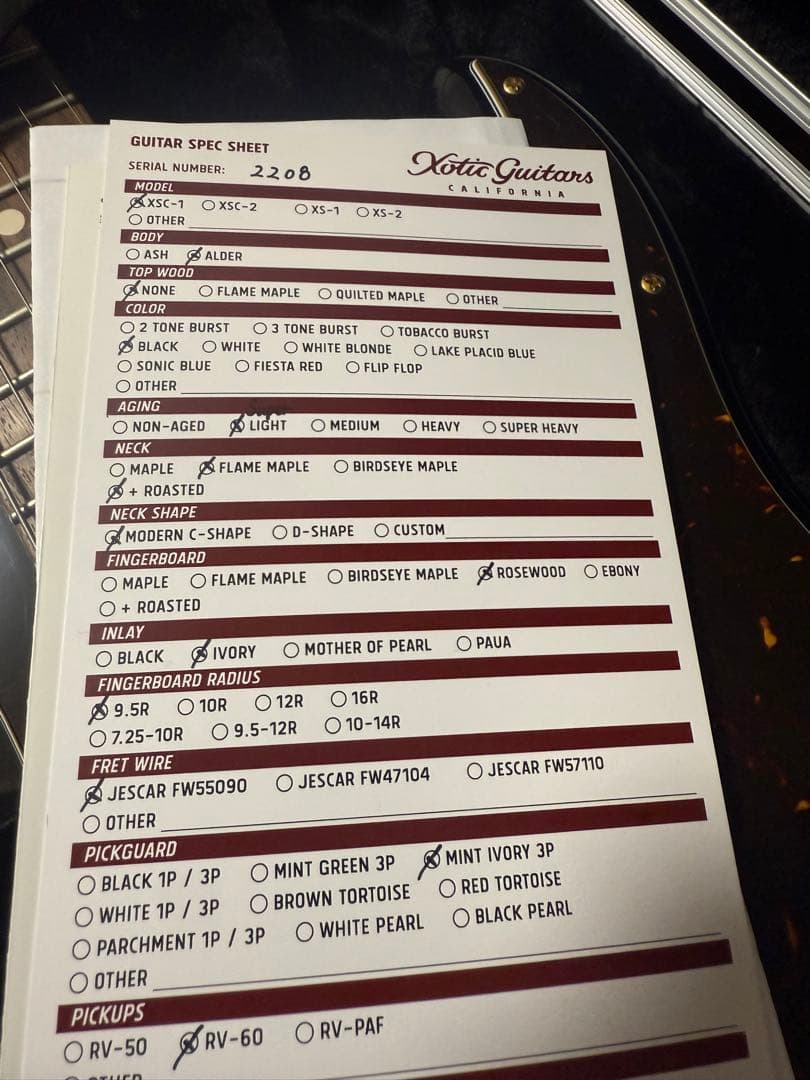 GUITAR SPEC SHEET
SERIAL NUMBER: 2208
Xotic Guitars
CALIFORNIA
MODEL
XSC-1 XSC-2 XS-1 XS-2
OTHER
BODY
ASH ALDER
TOP WOOD
NONE FLAME MAPLE QUILTED MAPLE OTHER
COLOR
2 TONE BURST 3 TONE BURST TOBACCO BURST
BLACK WHITE WHITE BLONDE LAKE PLACID BLUE
SONIC BLUE FIESTA RED FLIP FLOP
OTHER
AGING
Super
NON-AGED LIGHT MEDIUM HEAVY SUPER HEAVY
NECK
MAPLE FLAME MAPLE BIRDSEYE MAPLE
+ ROASTED
NECK SHAPE
MODERN C-SHAPE D-SHAPE CUSTOM
FINGERBOARD
MAPLE FLAME MAPLE BIRDSEYE MAPLE ROSEWOOD EBONY
+ ROASTED
INLAY
BLACK IVORY MOTHER OF PEARL PAUA
FINGERBOARD RADIUS
9.5R 10R 12R 16R
7.25-10R 9.5-12R 10-14R
FRET WIRE
JESCAR FW55090 JESCAR FW47104 JESCAR FW57110
OTHER
PICKGUARD
BLACK 1P / 3P MINT GREEN 3P MINT IVORY 3P
WHITE 1P / 3P BROWN TORTOISE RED TORTOISE
PARCHMENT 1P / 3P WHITE PEARL BLACK PEARL
OTHER
PICKUPS
RV-50 RV-60 RV-PAF
OTHER